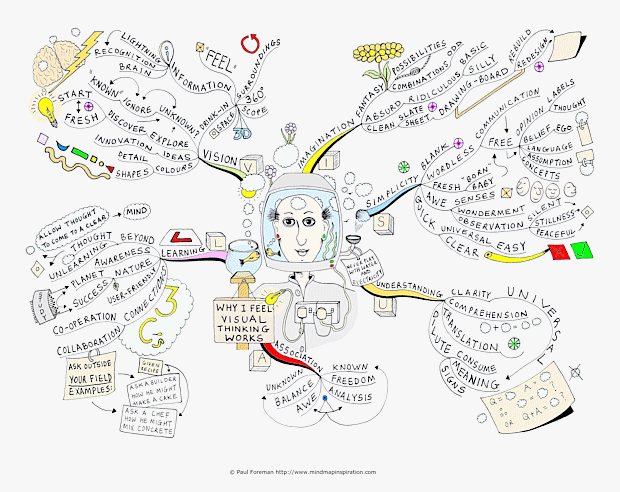 WHY I FEEL
VISUAL
THINKING
WORKS
VISION
V
I
S
U
A
L
LIGHTNING
RECOGNITION
BRAIN
INFORMATION
"FEEL"
SURROUNDINGS
360°
SCOPE
SPACE
3D
DRINK-IN
"KNOWN"
IGNORE
UNKNOWN
START
FRESH
DISCOVER EXPLORE
INNOVATION IDEAS
DETAIL
SHAPES COLOURS
IMAGINATION
FANTASY
POSSIBILITIES
COMBINATIONS
ABSURD RIDICULOUS
BASIC
SILLY
CLEAN SLATE
SHEET
DRAWING-BOARD
REBUILD
REDESIGN
SIMPLICITY
BLANK
WORDLESS
COMMUNICATION
FREE
OPINION
LABELS
THOUGHT
BELIEF-EGO
LANGUAGE
ASSUMPTION
CONCEPTS
FRESH "BORN
BABY
AWE SENSES
WONDERMENT
OBSERVATION
SILENT
STILLNESS
PEACEFUL
QUICK
UNIVERSAL
CLEAR EASY
NEVER PLAY
WITH WATER
AND
ELECTRICITY
UNDERSTANDING
CLARITY
COMPREHENSION
UNIVERSAL
TRANSLATION
MUTE CONSUME
MEANING
SIGNS
ASSOCIATION
UNKNOWN
BALANCE
AWE
KNOWN
FREEDOM
ANALYSIS
LEARNING
L
ALLOW THOUGHT
TO COME TO A CLEAR
MIND
THOUGHT BEYOND
UNLEARNING
AWARENESS
PLANET NATURE
SUCCESS
USER-FRIENDLY
CO-OPERATION
CONNECTIONS
COLLABORATION
3
C's
ASK OUTSIDE
YOUR FIELD
EXAMPLES:
GIVEN
RECIPE
ASK A BUILDER
HOW HE MIGHT
MAKE A CAKE
ASK A CHEF
HOW HE MIGHT
MIX CONCRETE
© Paul Foreman http://www.mindmapinspiration.com